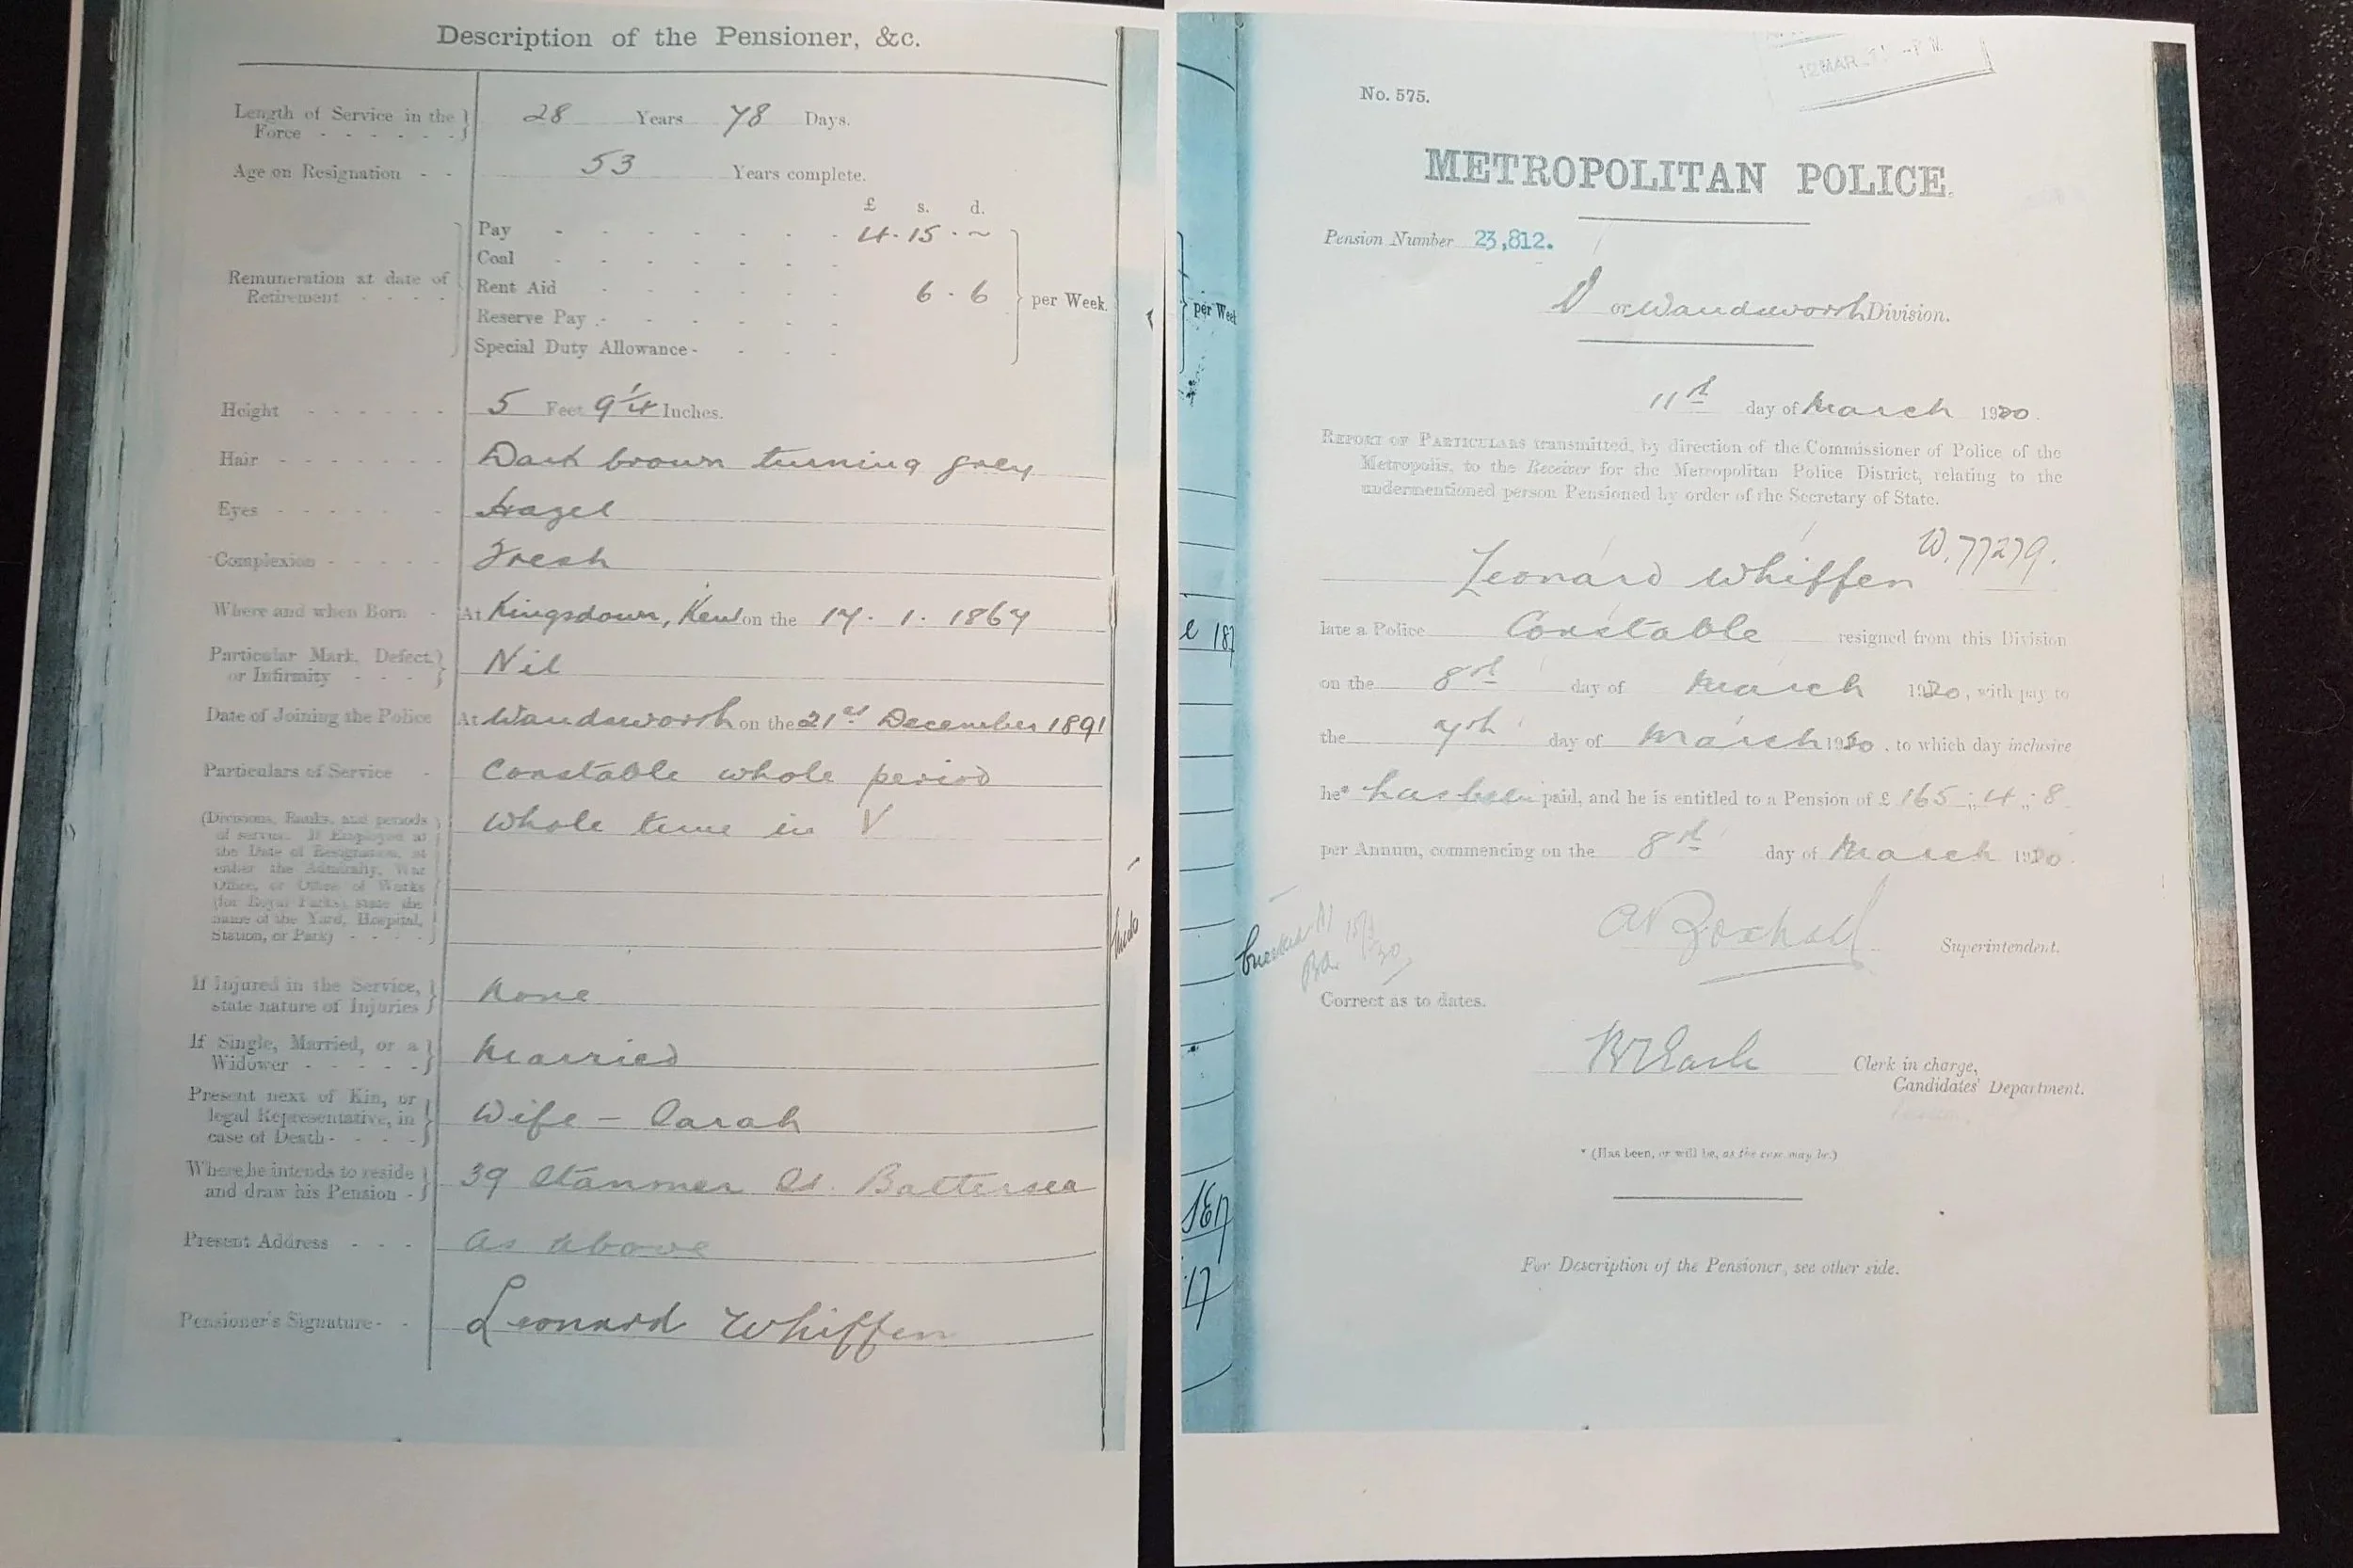 Description of the Pensioner, &c.
Length of Service in the Force - - - - - - 28 Years 78 Days.
Age on Resignation - - 53 Years complete.
£ s. d.
Remuneration at date of Retirement - - - -
Pay - - - - - - - 4 . 15 . ~
Coal - - - - - -
Rent Aid - - - - - - 6 . 6
Reserve Pay - - - - - -
Special Duty Allowance - - - -
per Week.
Height - - - - - - 5 Feet 9 1/4 Inches.
Hair - - - - - - - Dark brown turning grey
Eyes - - - - - - Hazel
Complexion - - - - - Fresh
Where and when Born - At Kingsdown, Kent on the 17 . 1 . 1867
Particular Mark, Defect, or Infirmity - - - - Nil
Date of Joining the Police At Wandsworth on the 21st December 1891
Particulars of Service - Constable whole period
(Divisions, Ranks, and periods of service. If Employed at the Date of Resignation, at either the Admiralty, War Office, or Office of Works (for Royal Parks), state the name of the Yard, Hospital, Station, or Park) - - - -
Whole time in V
If Injured in the Service, state nature of Injuries None
If Single, Married, or a Widower - - - - - Married
Present next of Kin, or legal Representative, in case of Death - - - - Wife – Sarah
Where he intends to reside and draw his Pension - 39 Stanmer St. Battersea
Present Address - - - As above
Pensioner's Signature - - Leonard Whiffen
12 MAR
No. 575.
METROPOLITAN POLICE.
Pension Number 23,812.
V or Wandsworth Division.
11th day of March 1920.
REPORT OF PARTICULARS transmitted, by direction of the Commissioner of Police of the
Metropolis, to the Receiver for the Metropolitan Police District, relating to the
undermentioned person Pensioned by order of the Secretary of State.
W. 77279.
Leonard Whiffen
late a Police Constable resigned from this Division
on the 8th day of March 1920, with pay to
the 7th day of March 1920, to which day inclusive
he* has been paid, and he is entitled to a Pension of £ 165 : 4 : 8
per Annum, commencing on the 8th day of March 1920.
Superintendent.
Correct as to dates.
Clerk in charge,
Candidates' Department.
* (Has been, or will be, as the case may be.)
For Description of the Pensioner, see other side.
per Week